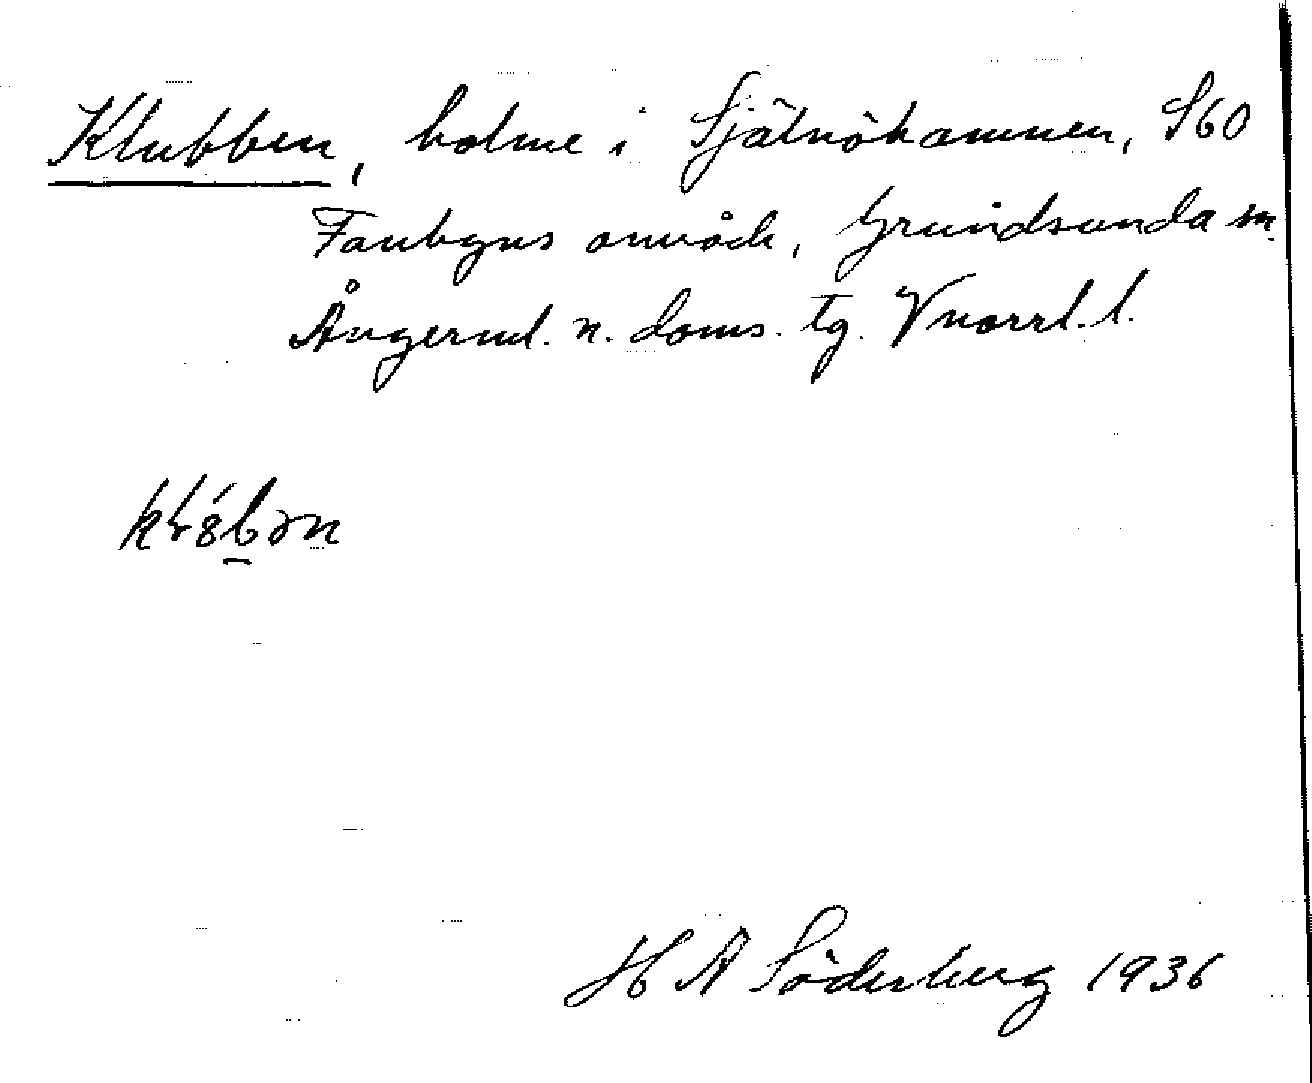 Klubben, holme i Själnöhamnen, S60
Fanbyns område, Grundsunda sn.
Ångerml. n. doms. tg. Vnorrl. l.
H A Söderberg 1936